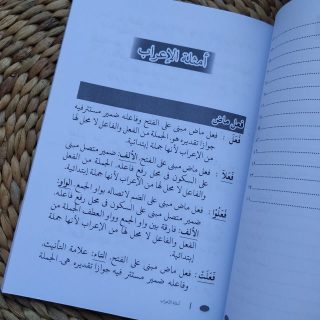 أمثلة الإعراب
فعل ماض
فَعَلَ : فعل ماض مبنى على الفتح وفاعله ضمير مستتر فيه
جوازا تقديره هو. الجملة من الفعل والفاعل لا محل لها
من الإعراب لأنها جملة إبتدائية.
فَعَلاَ : فعل ماض مبنى على الفتح. الألف: ضمير متصل مبنى
على السكون فى محل رفع فاعله. الجملة من
الفعل والفاعل لا محل لها من الإعراب لأنها جملة
إبتدائية.
فَعَلُوْا : فعل ماض مبنى على الضم لاتصاله بواو الجمع. الواو:
ضمير متصل مبنى على السكون فى محل رفع فاعله.
الألف: فارقة بين واو الجمع وواو العطف. الجملة من
الفعل والفاعل لا محل لها من الإعراب لأنها جملة
إبتدائية.
فَعَلَتْ : فعل ماض مبنى على الفتح. التاء: علامة التأنيث.
وفاعله ضمير مستتر فيه جوازا تقديره هي. الجملة
أمثلة الإعراب
١